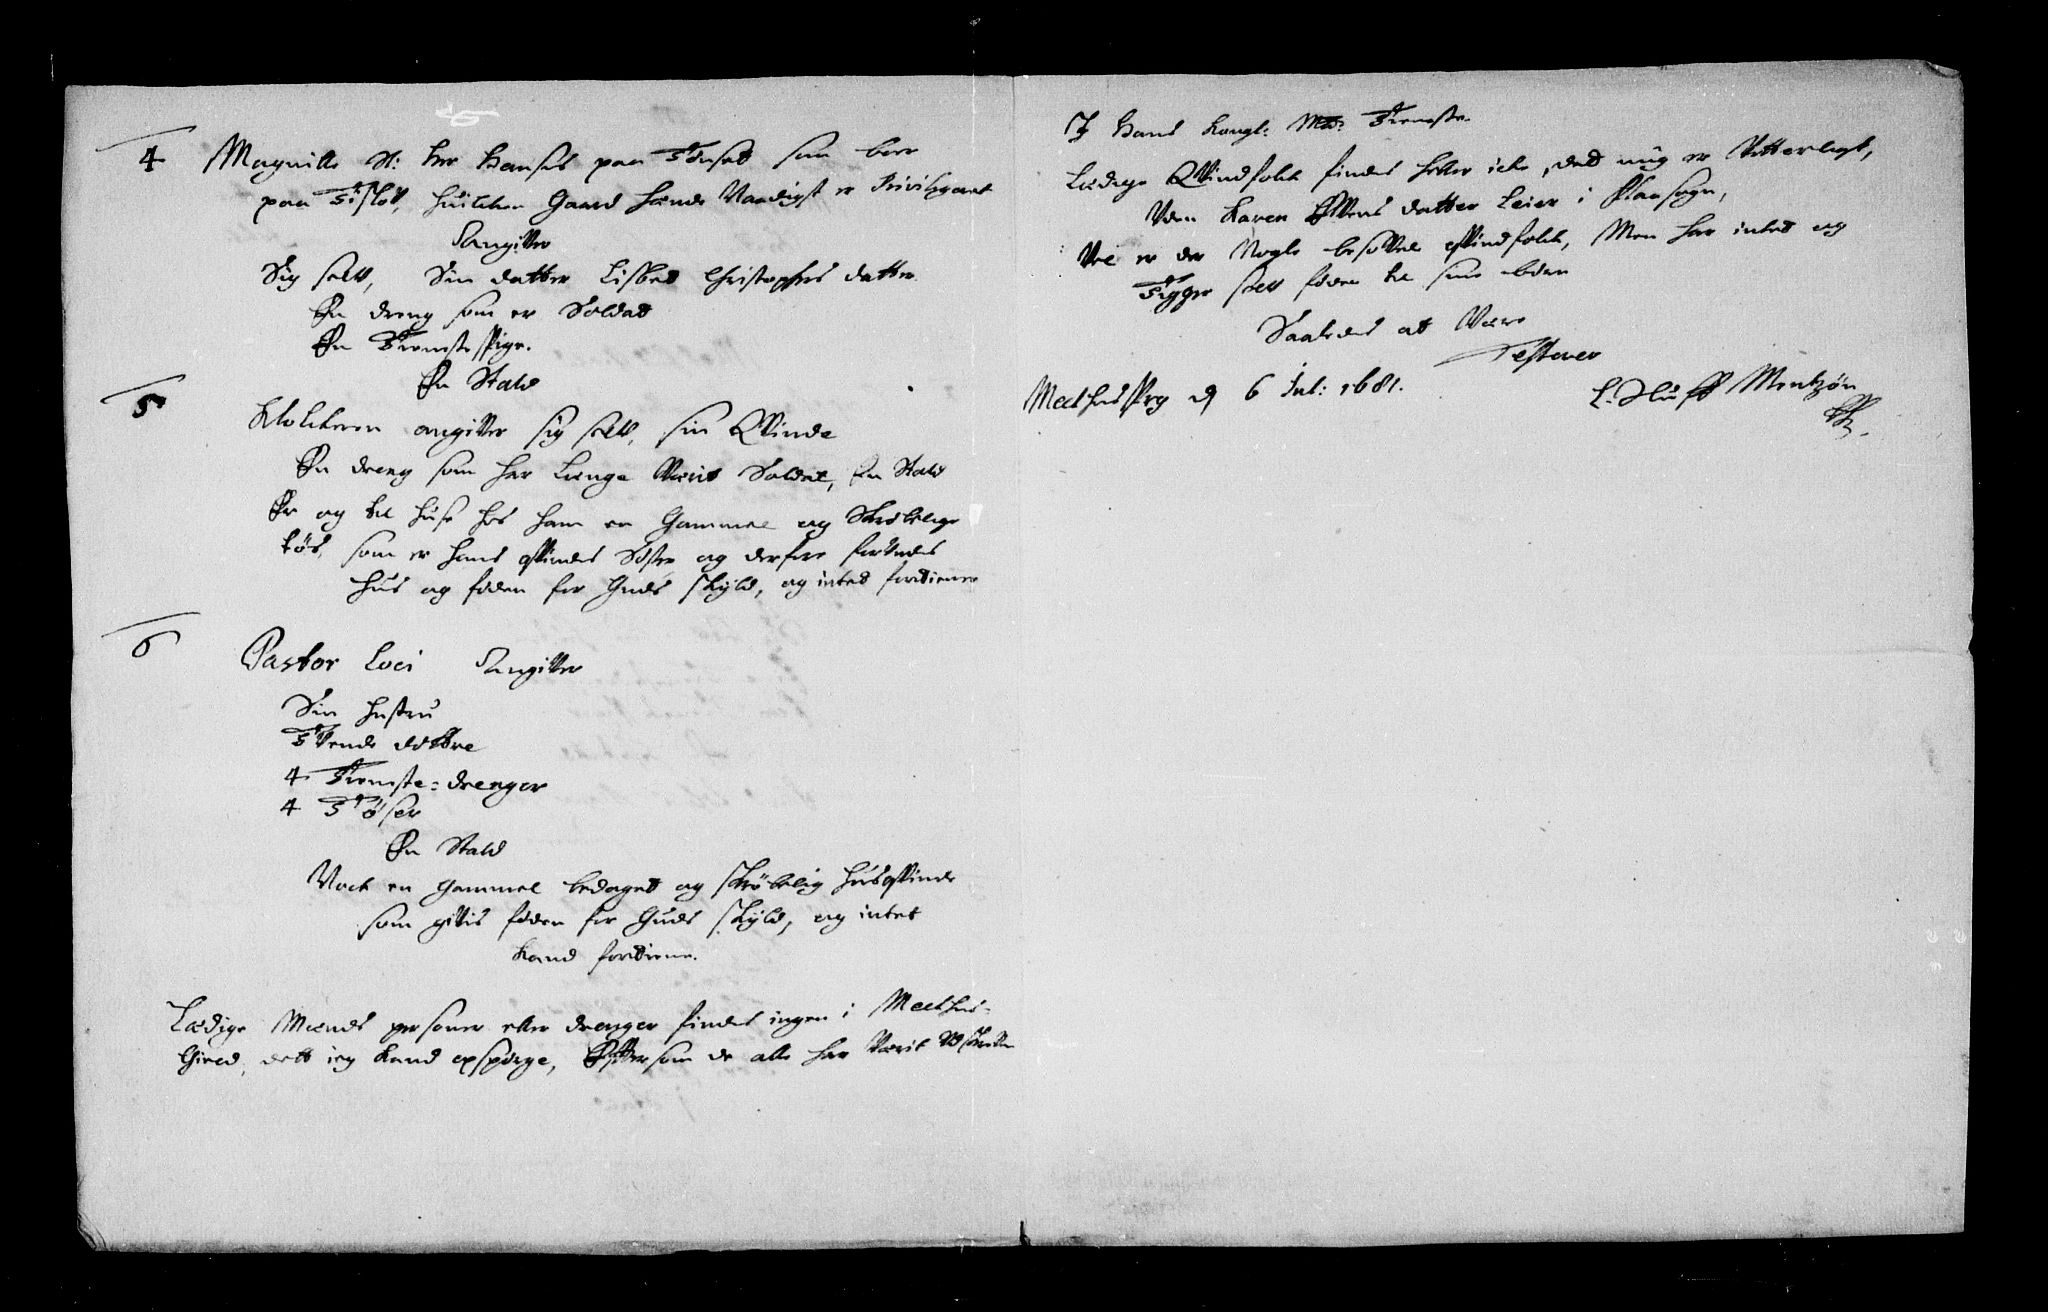 4 Magnille Sl: her Hanses paa Tönset som boer
paa Tisløv, huilchen Gaard hende Naadigst er Privilegeret
Angiffver
Sig self, Sin datter Lisbed Christophers datter.
En dreng som er Soldat
En Tieniste Pige.
En Stald
5 Klokkeren angiffver sig self, sin Qvinde
En dreng som har Længe Værit Soldat, En Stald
Er og til huse hos ham en Gammel og Skrøbelige
tøs, som er hans qvindes Søster og derfore forundes
hus og føden for Guds skyld, og intet fortiener
6 Pastor Loci Angiffver
Sin hustru
Tvende døttre
4 Tieniste-drenger
4 Tøser
En Stald
Noch en Gammel bedaget og skrøbelig husqvinde
som givis føden for Guds skyld, og intet
kand fortiene.
Ledige Mænds personer eller drenger findes ingen i Meelhus-
Gield, dett ieg kand expørge, Efftersom de alle har Værit Udskrefven
I Hans Kongl: May: Tieniste.
Ledige Qvindfolck findes heller icke, det mig er Vitterligt,
Uden Karen Ifvers datter Leier i Flaa sogn,
Vel er der Nogle besofvede qvindfolck, Men har intet og
Tigger self føden til sine børn
Saaledes at Være
Testerer
Meelhus Prg d 6 Jul: 1681.
L: Muff Mentzøn